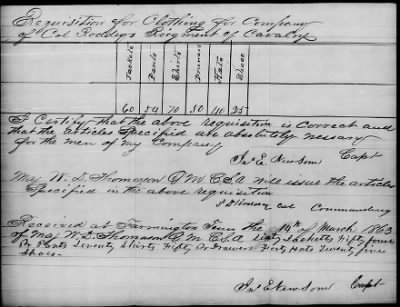 Requisition for Clothing for Company
of Col Roddeys Regiment of Cavalry
Jackets Pants Shirts Drawers Hats Shoes
60 54 70 30 40 35
I Certify that the above requisition is correct and
that the articles Specified are absolutely nessary
for the men of my Company
Jno E Newsom Capt
Maj W. D. Thomason Q M C.S.A will issue the articles
Specified in the above requisition
Col Commanding
Received at Farmington Tenn the 14th of March 1863
of Maj W. D. Thomason Q M C.S.A Jackets Fifty four
Pr Pants Seventy Shirts Fifty Pr Drawers Forty Hats Twenty five
Shoes
Jno E Newsom Capt